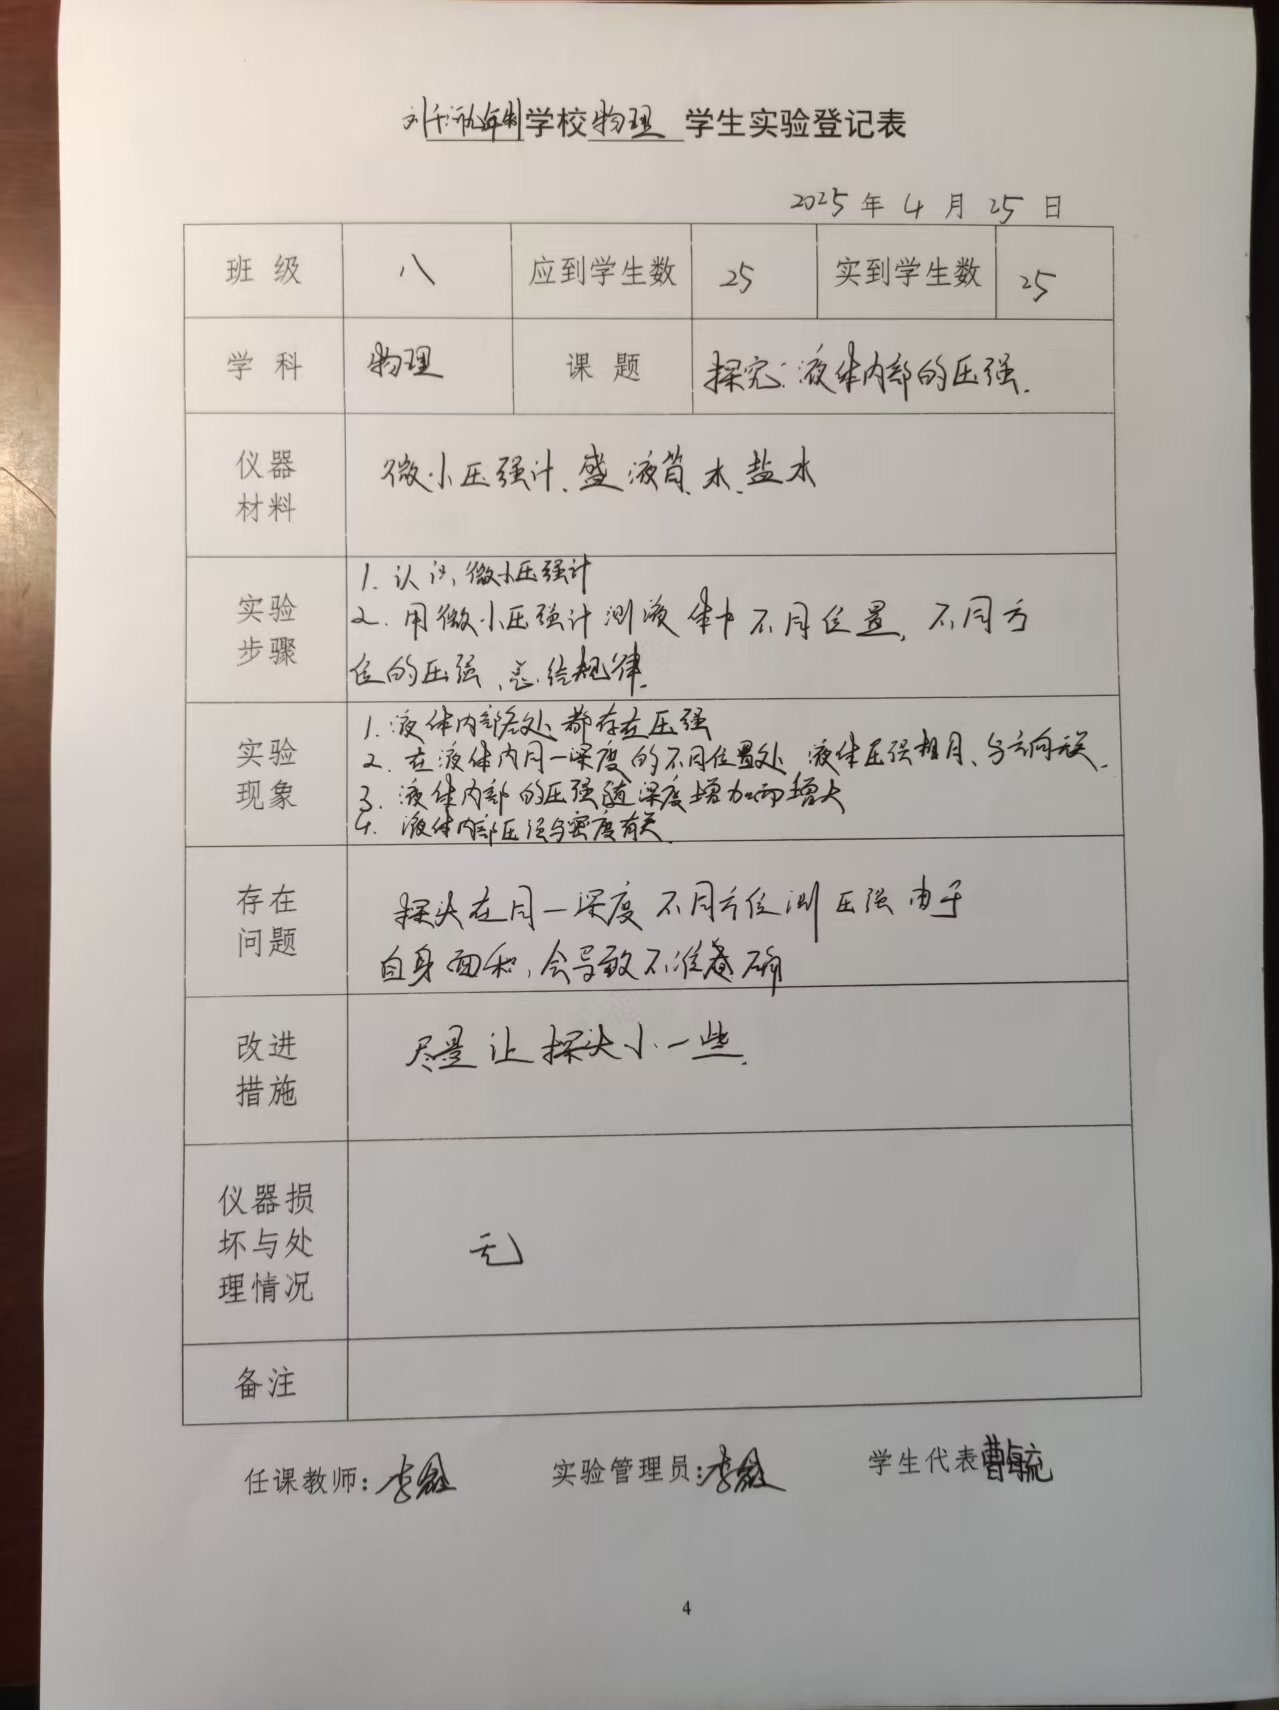 学校物理 学生实验登记表
2025 年 4 月 25 日
班 级 八 应到学生数 25 实到学生数 25
学 科 物理 课 题 探究:液体内部的压强.
仪器
材料
微小压强计、盛液筒、水、盐水
实验
步骤
1. 认识微小压强计
2. 用微小压强计测液体中不同位置,不同方
位的压强、总结规律.
实验
现象
1. 液体内部各处都存在压强
2. 在液体内同一深度的不同位置处 液体压强相同、与方向无关.
3. 液体内部的压强随深度增加而增大
4. 液体内部压强与密度有关.
存在
问题
探头在同一深度不同方位测压强由于
自身面积,会导致不准确
改进
措施
尽量让探头小一些.
仪器损
坏与处
理情况
无
备注
任课教师: 实验管理员: 学生代表
4